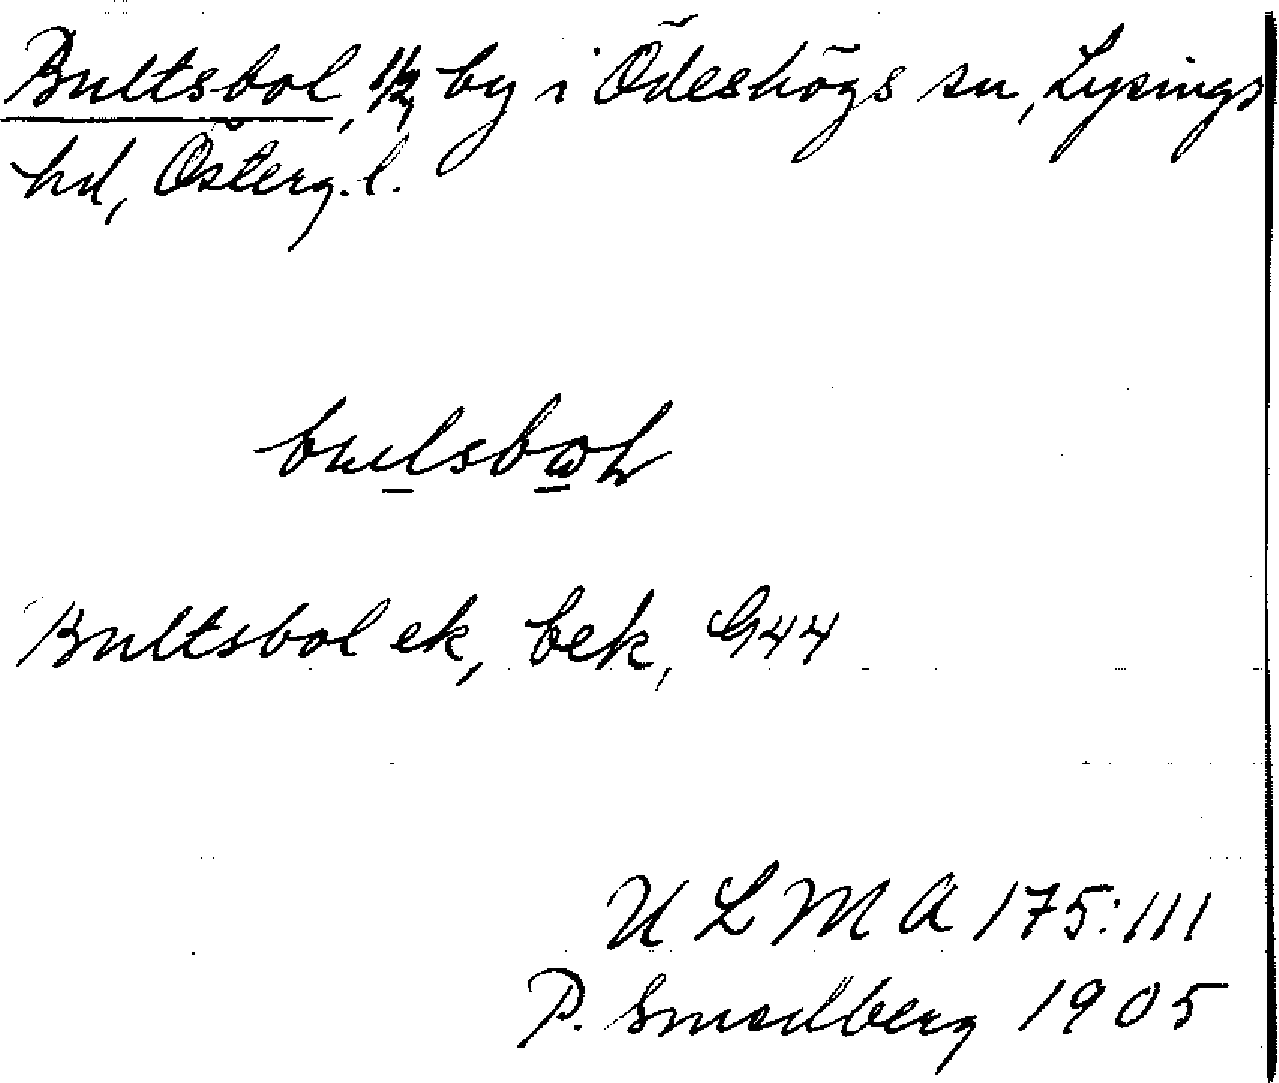 Bultsbol, 1/2 by i Ödeshögs sn, Lysings
hd, Österg. l.
bulsbωL
Bultsbol ek, bek, G44
ULMA 175:111
P. Smedberg 1905